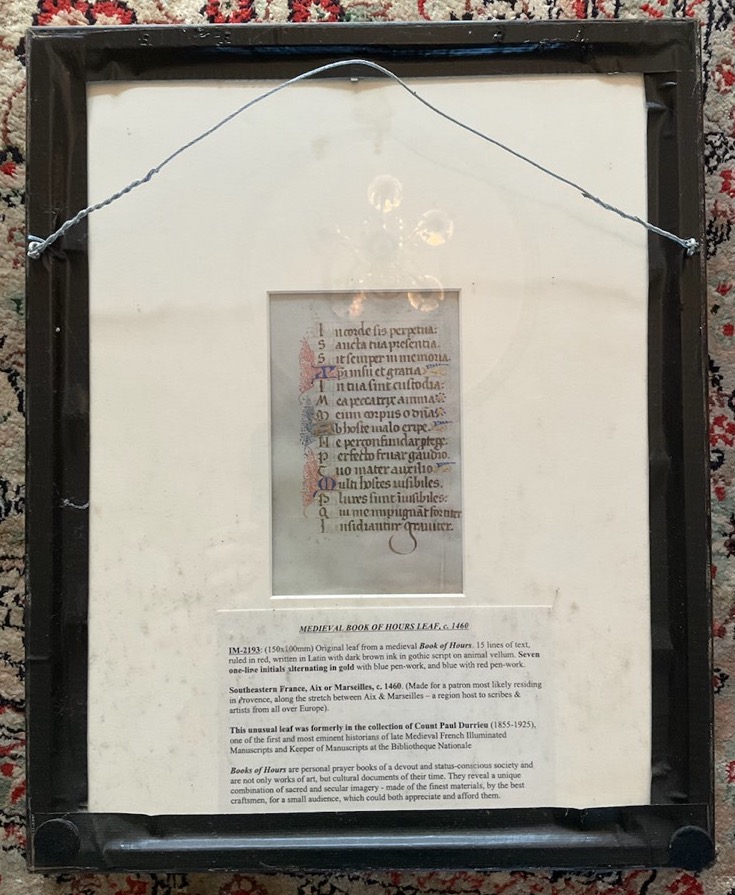 In corde sis perpetua:
Sancta tua presentia.
Sit semper in memoria.
pi misu et gratia
In tua sint custodia:
Mea peccatrix anima
Meium corpus o dñas
Ab hoste malo eripe.
Ne per confundar ptege:
Perfecto fruar gaudio.
Tuo mater auxilio.
Multi hostes uisibiles.
Plures sunt iuisibiles:
Qui me impugnāt fortiter
Insidiantur grauiter.
MEDIEVAL BOOK OF HOURS LEAF, c. 1460
IM-2193: (150x100mm) Original leaf from a medieval Book of Hours. 15 lines of text,
ruled in red, written in Latin with dark brown ink in gothic script on animal vellum. Seven
one-line initials alternating in gold with blue pen-work, and blue with red pen-work.
Southeastern France, Aix or Marseilles, c. 1460. (Made for a patron most likely residing
in Provence, along the stretch between Aix & Marseilles – a region host to scribes &
artists from all over Europe).
This unusual leaf was formerly in the collection of Count Paul Durrieu (1855-1925),
one of the first and most eminent historians of late Medieval French Illuminated
Manuscripts and Keeper of Manuscripts at the Bibliotheque Nationale
Books of Hours are personal prayer books of a devout and status-conscious society and
are not only works of art, but cultural documents of their time. They reveal a unique
combination of sacred and secular imagery - made of the finest materials, by the best
craftsmen, for a small audience, which could both appreciate and afford them.